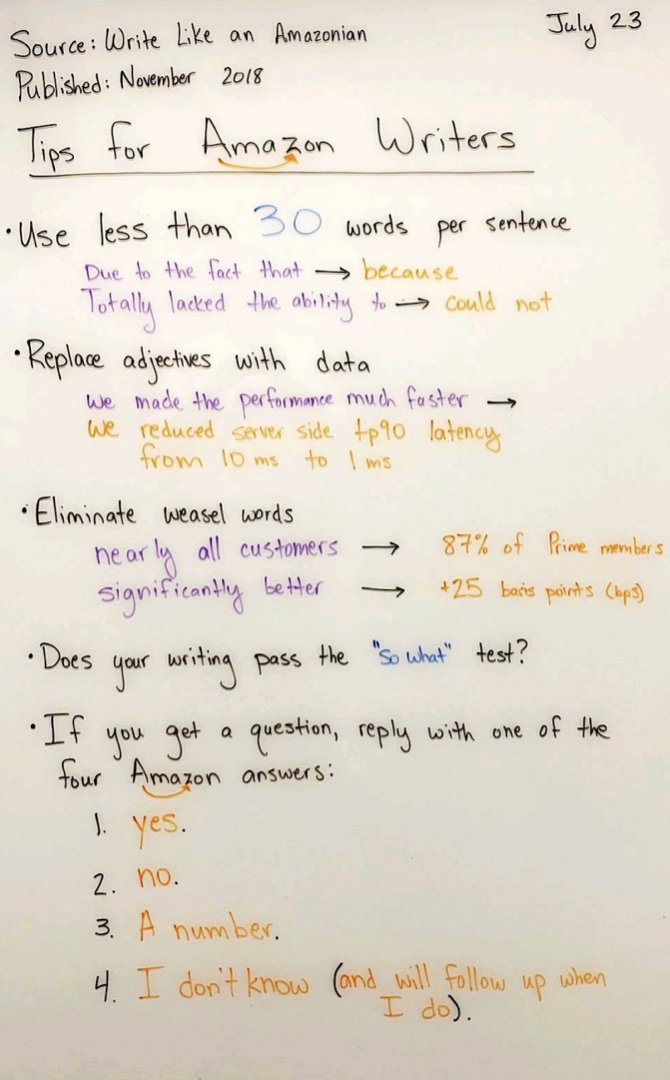 Source: Write Like an Amazonian
July 23
Published: November 2018
Tips for Amazon Writers
• Use less than 30 words per sentence
Due to the fact that → because
Totally lacked the ability to → could not
• Replace adjectives with data
We made the performance much faster →
We reduced server side tp90 latency
from 10 ms to 1 ms
• Eliminate weasel words
nearly all customers → 87% of Prime members
significantly better → +25 basis points (bps)
• Does your writing pass the "So what" test?
• If you get a question, reply with one of the
four Amazon answers:
1. yes.
2. no.
3. A number.
4. I don't know (and will follow up when
I do).